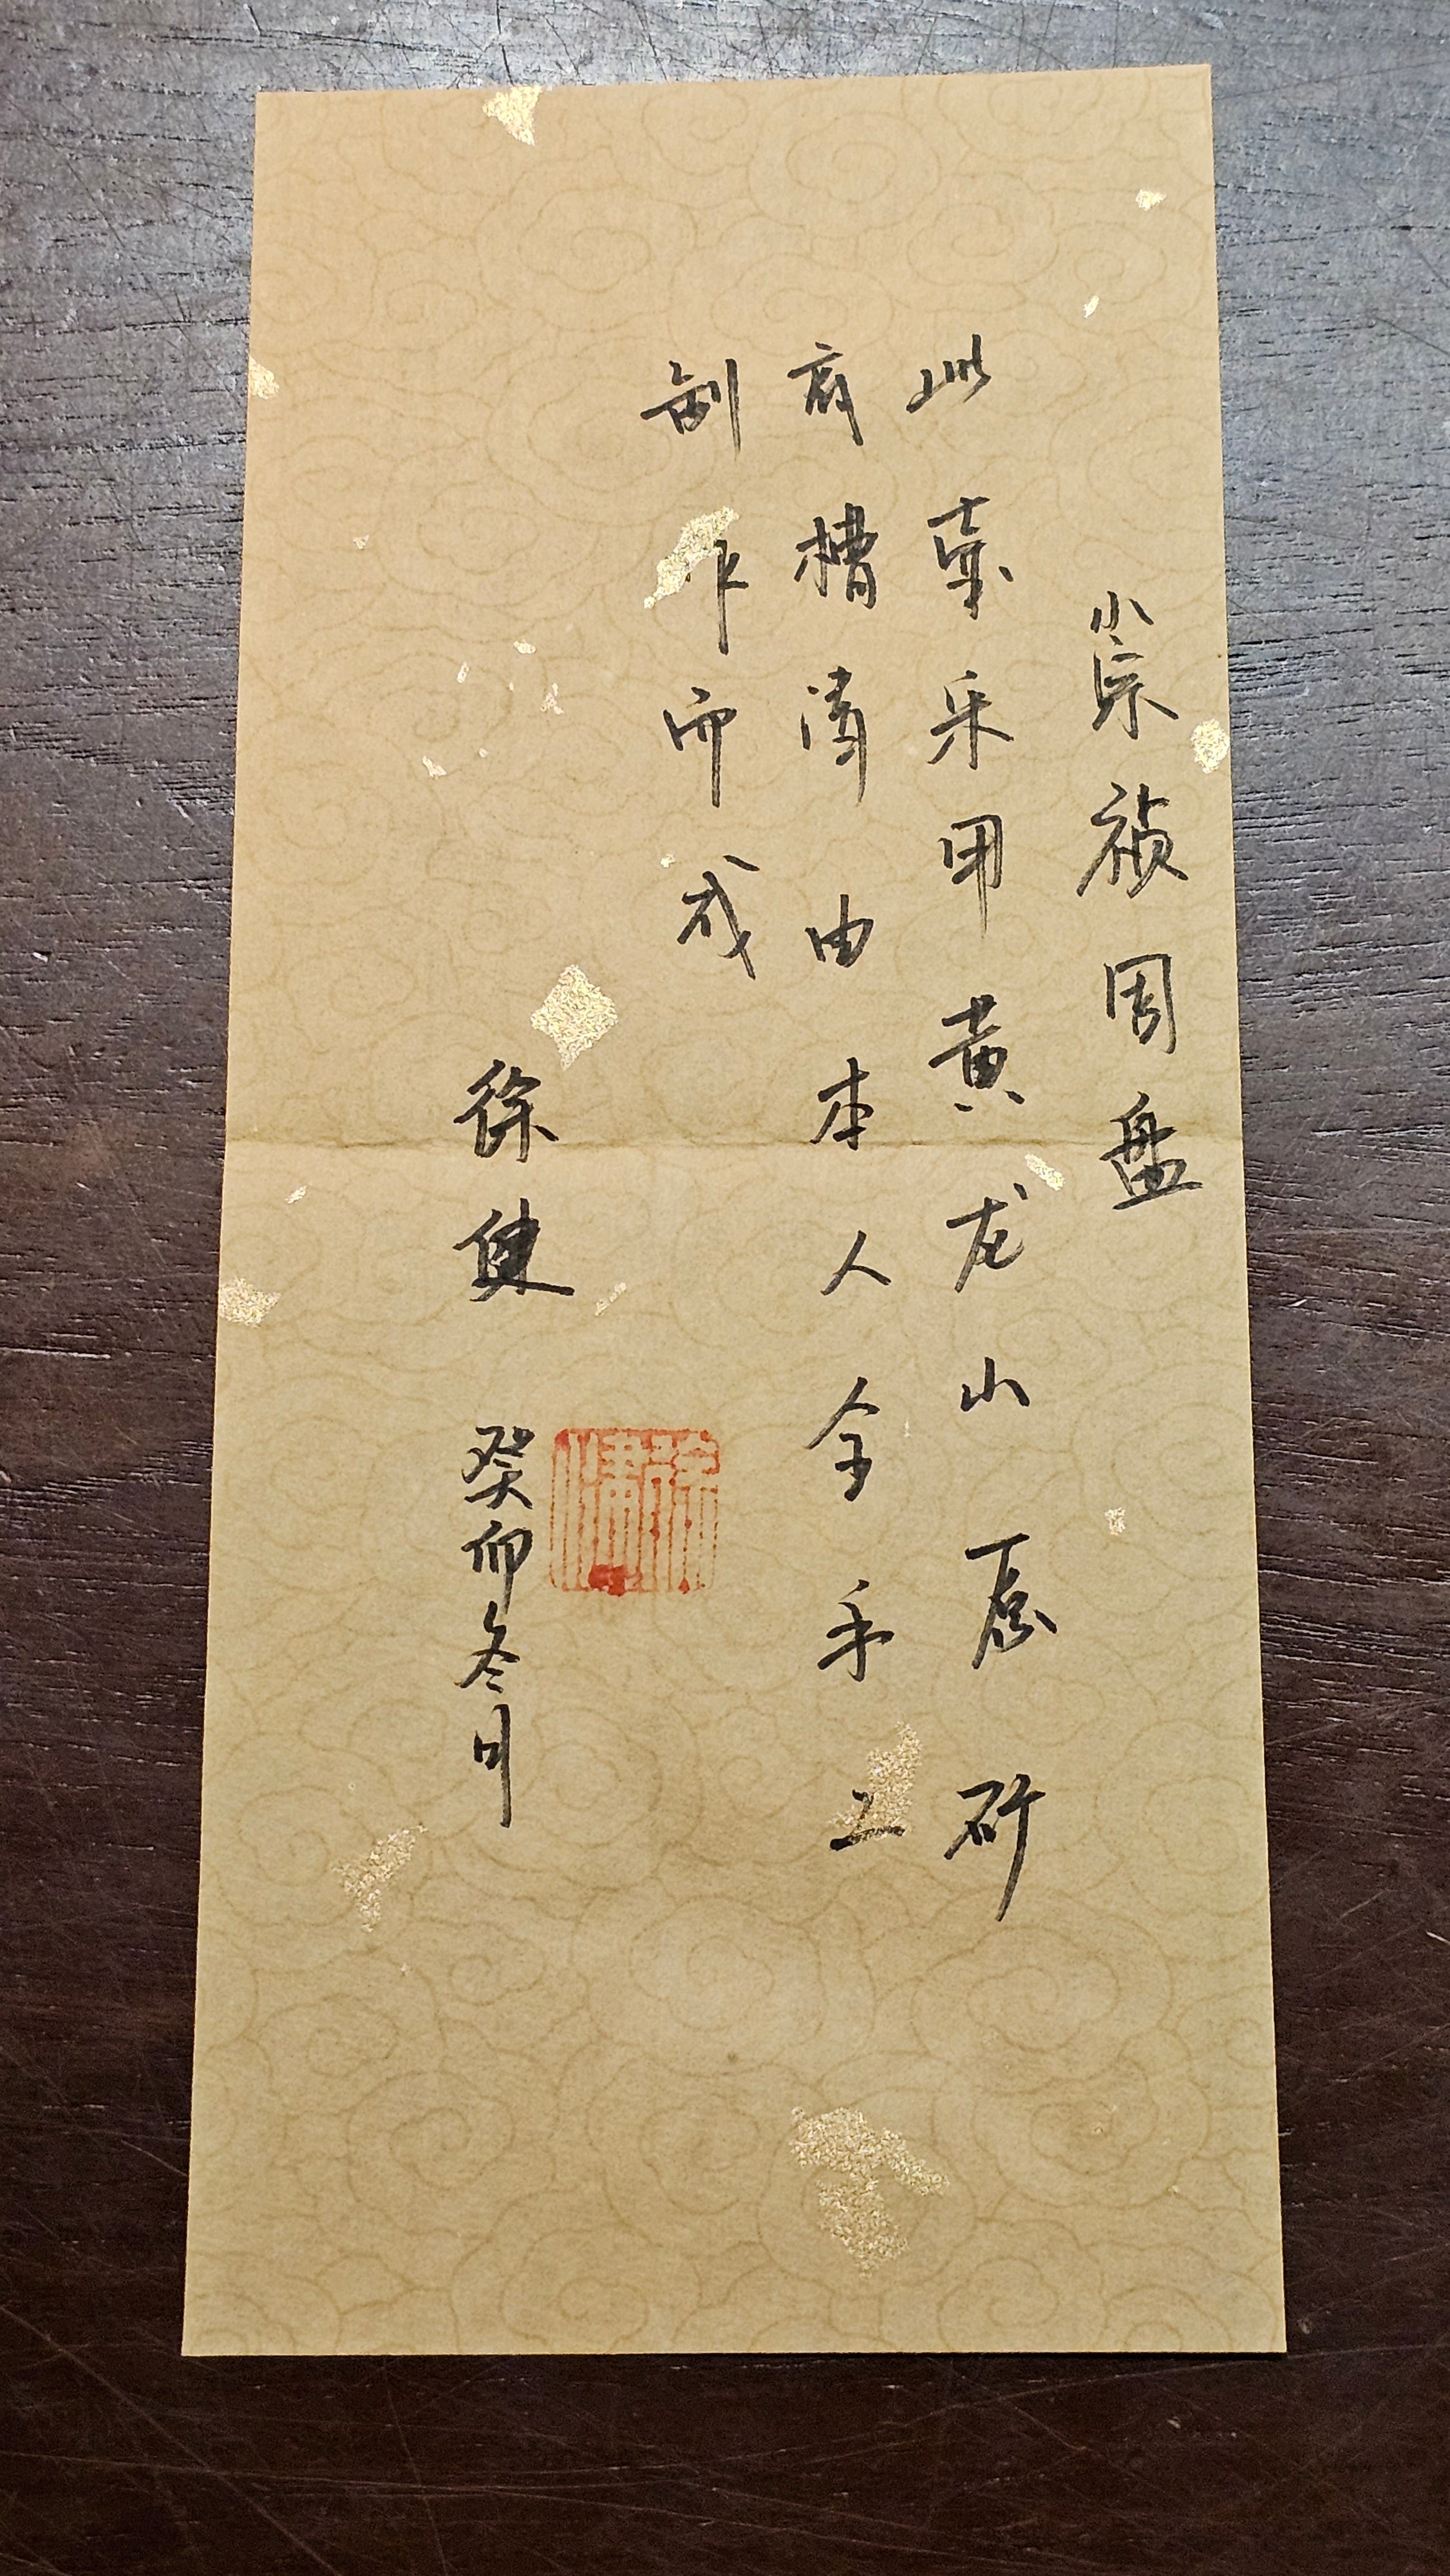 崇祯周盘
此壶采用黄龙山原矿
底槽清由本人全手工
制作而成
徐健 癸卯冬月
徐健